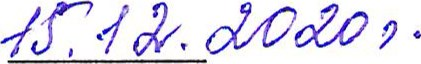 15.12.2020г.